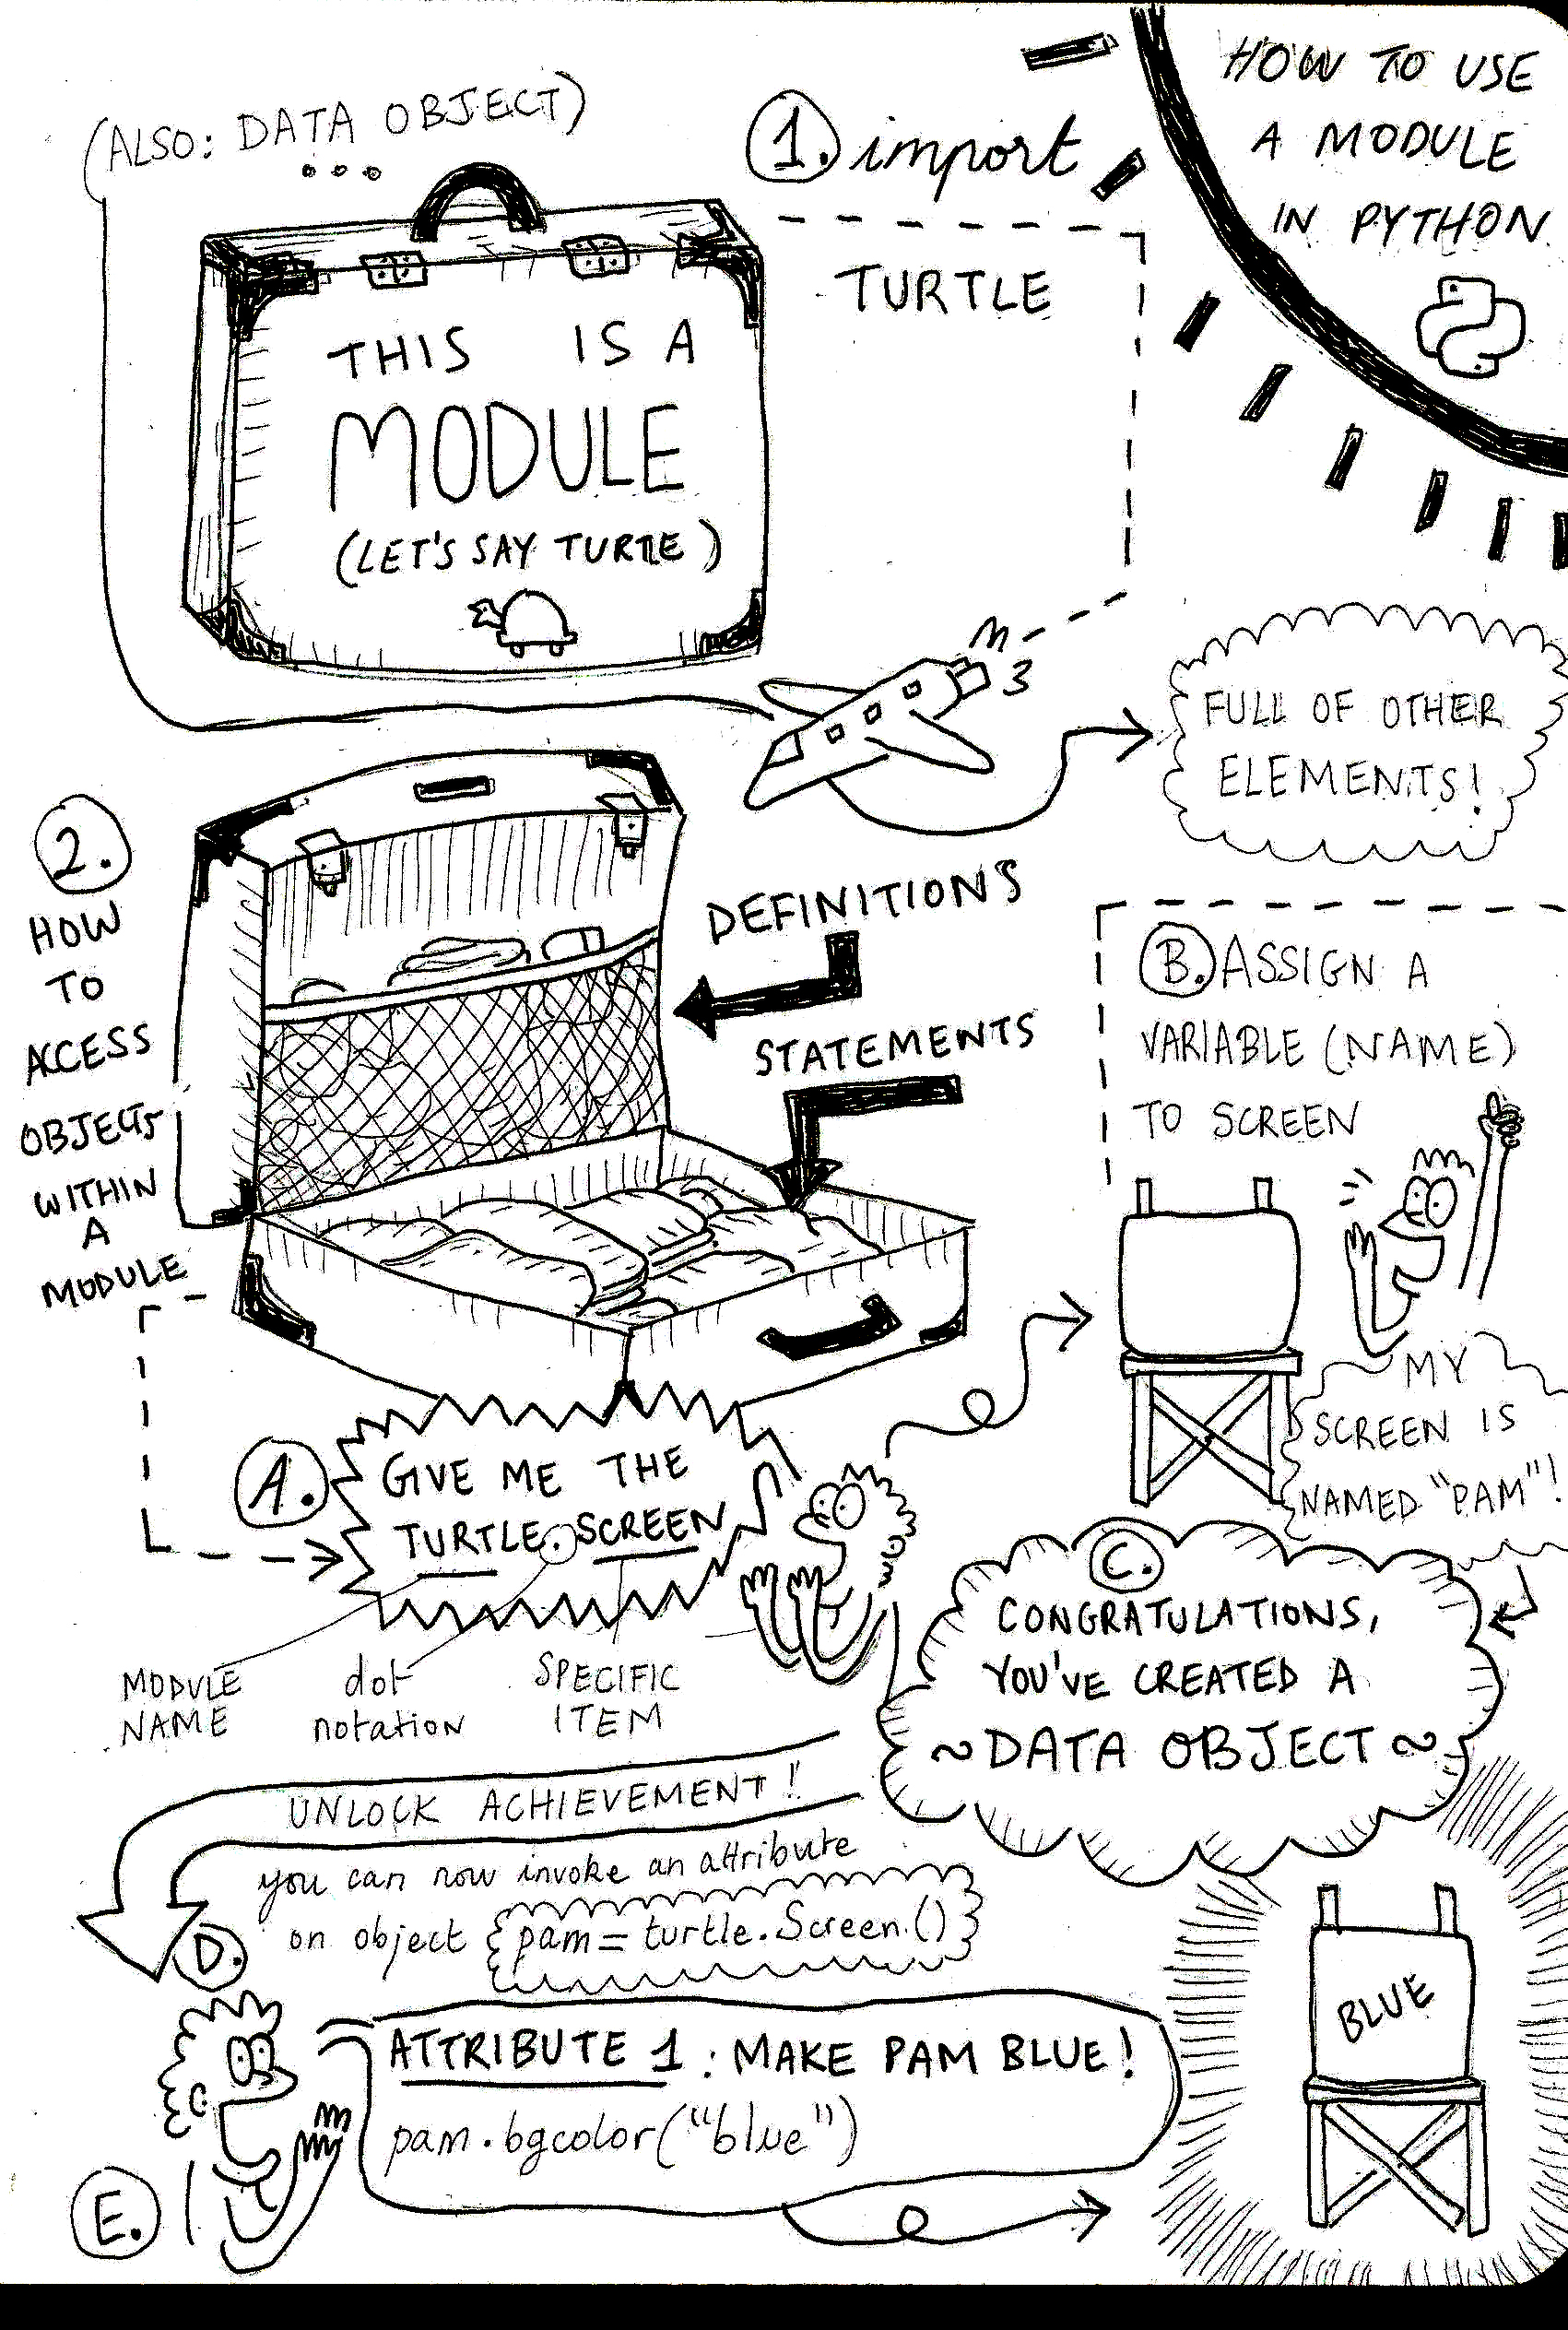 HOW TO USE
A MODULE
IN PYTHON
(ALSO: DATA OBJECT)
...
1. import
TURTLE
THIS IS A
MODULE
(LET'S SAY TURTLE)
FULL OF OTHER
ELEMENTS!
2.
HOW
TO
ACCESS
OBJECTS
WITHIN
A
MODULE
DEFINITIONS
STATEMENTS
A.
GIVE ME THE
TURTLE.SCREEN
MODULE
NAME
dot
notation
SPECIFIC
ITEM
B. ASSIGN A
VARIABLE (NAME)
TO SCREEN
MY
SCREEN IS
NAMED "PAM"!
C.
CONGRATULATIONS,
YOU'VE CREATED A
~DATA OBJECT~
UNLOCK ACHIEVEMENT!
D.
you can now invoke an attribute
on object {pam = turtle.Screen()}
E.
ATTRIBUTE 1: MAKE PAM BLUE!
pam.bgcolor("blue")
BLUE